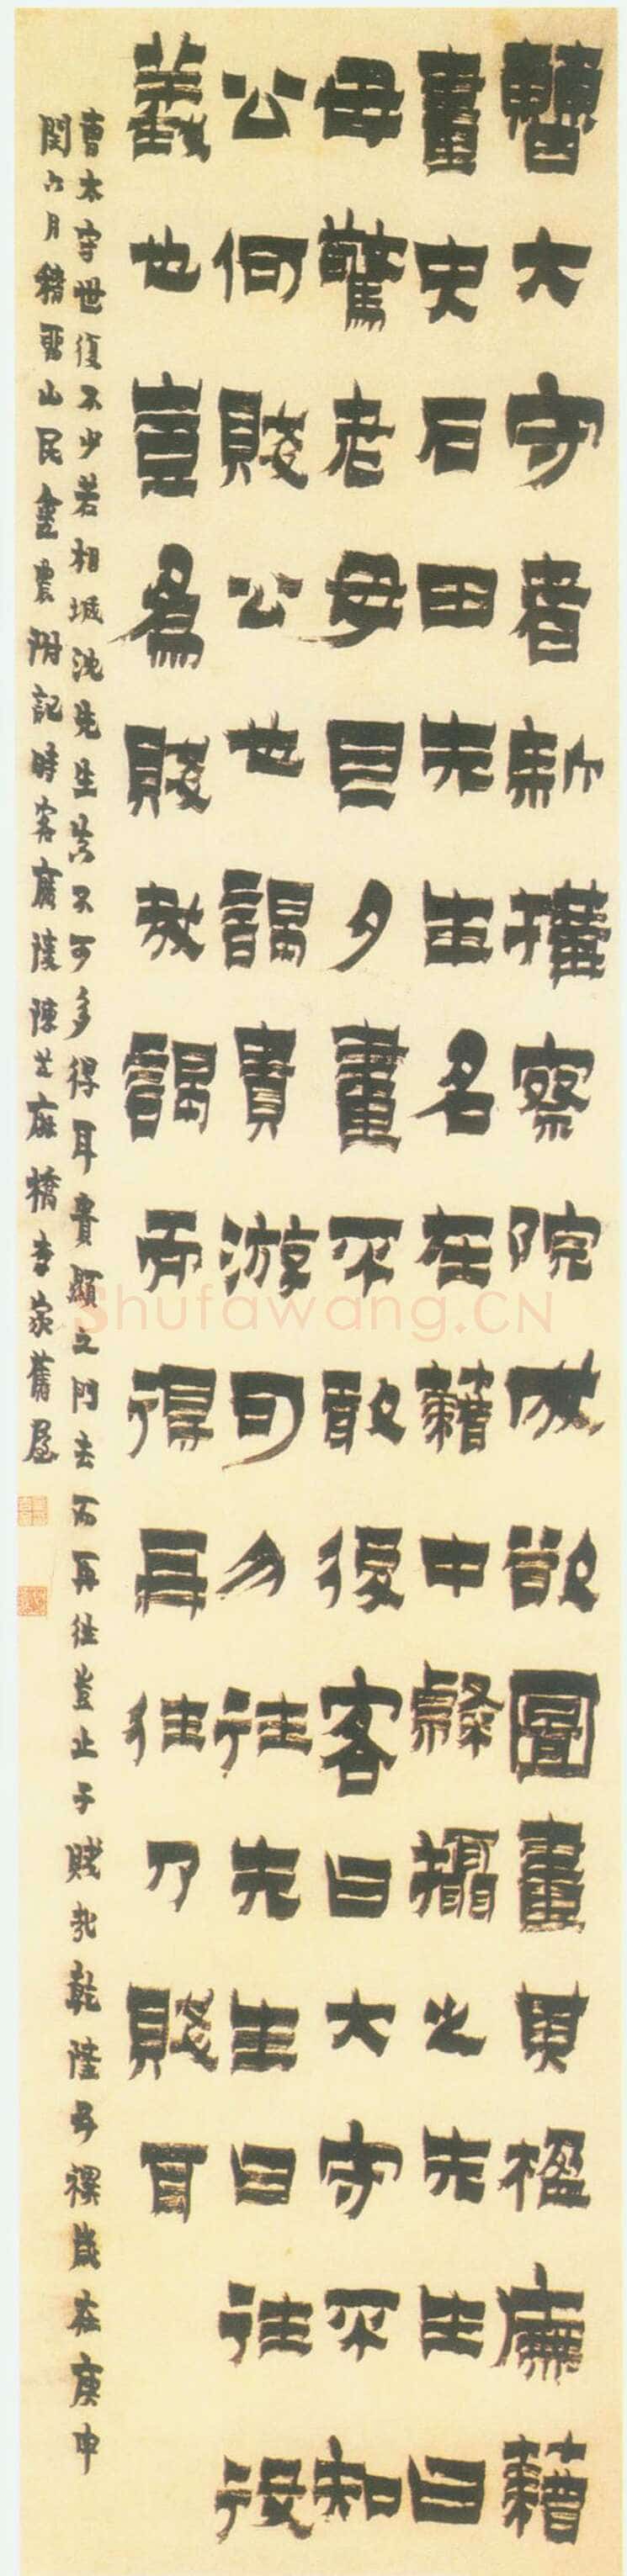 曹大守者新構察院成欲圖畫其楹廡藉
畫史石田先生名在藉中隸攝之先生曰
毋驚老母旦夕畫不敢後客曰大守不知
公何賤公也謁貴游可勿往先生曰往役
義也豈為賤哉謁而得再往乃賤耳
曹太守世復不少若相城沈先生真不可多得耳貴顯之門去而再往豈止于賤哉乾隆五禩歲在庚申
閏六月稽畱山民金農附記時客廣陵陳橋李家舊屋
Shufawang.CN